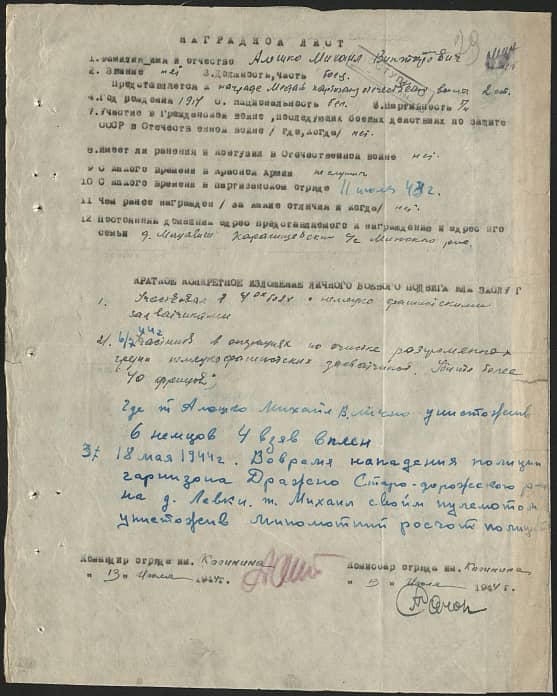 НАГРАДНОЙ ЛИСТ
29
1. Фамилия, имя и отчество Алошко Михаил
2. Звание нет 3. Должность, часть боец
Представляется к награде Медал партизану отечествен. войны 2 ст.
4. Год рождения 5. национальность бел. 6. Партийность
7. Участие в Гражданской войне, последующих боевых действиях по защите
СССР в Отечественной войне / где, когда/ нет.
8. Имеет ли ранения и контузии в Отечественной войне нет.
9 С какого времени в Красной Армии не служил
10 С какого времени в партизанском отряде 11 июля 43 г.
11 Чем ранее награжден / за какие отличия и когда/ нет.
12 Постоянный домашний адрес представляемого к награждению и адрес его
семьи д.
КРАТКОЕ КОНКРЕТНОЕ ИЗЛОЖЕНИЕ ЛИЧНОГО БОЕВОГО ПОДВИГА ИЛИ ЗАСЛУГ
1. Участвовал в 4ох боях с немецко фашистскими
захватчиками
2). 6/7 44 г участник в операциях по очистке разгромленных
групп немецкофашистских захватчиков. Убито более
40 фрицов;
где т Алошко Михаил В. лично унистожив
6 немцов 4 взяв вплен
3). 18 мая 1944 г. Вовремя нападения полиции
гарнизона Дражно Старо-дорожского
на д. Левки. т. Михаил своим пулемотом
унистожив миномотний росчот
Командир отряда им. Калинина Комиссар отряда им. Калинина
" 13 " Июля 1944 г. " 13 " Июля 1944 г.